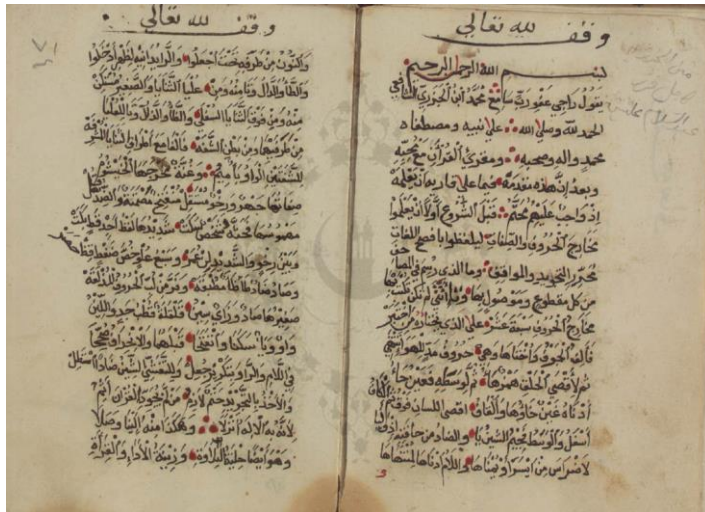 وقف لله تعالى
بسم الله الرحمن الرحيم
يقول راجي عفو رب سامع محمد ابن الجزري الشافعي
الحمد لله وصلى الله على نبيه ومصطفاه
محمد واله وصحبه ومقرئ القران مع محبه
وبعد ان هذه مقدمه فيما على قارئه ان يعلمه
اذ واجب عليهم محتم قبل الشروع اولا ان يعلموا
مخارج الحروف والصفات ليلفظوا بافصح اللغات
محرري التجويد والمواقف وما الذي رسم في المصاحف
من كل مقطوع وموصول بها وتاء انثى لم تكن تكتب بها
مخارج الحروف سبعة عشر على الذي يختاره من اختبر
فالف الجوف واختاها وهي حروف مد للهواء تنتهي
ثم لاقصى الحلق همز هاء ثم لوسطه فعين حاء
ادناه غين خاؤها والقاف اقصى اللسان فوق ثم الكاف
اسفل والوسط فجيم الشين يا والضاد من حافته اذ وليا
لاضراس من ايسر او يمناها واللام ادناها لمنتهاها
وقف لله تعالى
٧١
والنون من طرفه تحت اجعلوا والرا يدانيه لظهر ادخلوا
والطا والدال وتا منه ومن عليا الثنايا والصفير مستكن
منه ومن فوق الثنايا السفلى والظا والذال وثا للعليا
من طرفيهما ومن بطن الشفه فالفا مع اطراف الثنايا المشرفه
للشفتين الواو باء ميم وغنة مخرجها الخيشوم
صفاتها جهر ورخو مستفل منفتح مصمتة والضد قل
مهموسها فحثه شخص سكت شديدها لفظ اجد قط بكت
وبين رخو والشديد لن عمر وسبع علو خص ضغط قظ حصر
وصاد ضاد طا ظا مطبقه وفر من لب الحروف المذلقه
صفيرها صاد وزاي سين قلقلة قطب جد واللين
واو ويا سكنا وانفتحا قبلهما والانحراف صححا
في اللام والرا وبتكرير جعل وللتفشي الشين ضادا استطل
والاخذ بالتجويد حتم لازم من لم يجود القران آثم
لانه به الاله انزلا وهكذا منه الينا وصلا
وهو ايضا حلية التلاوة وزينة الاداء والقراءة